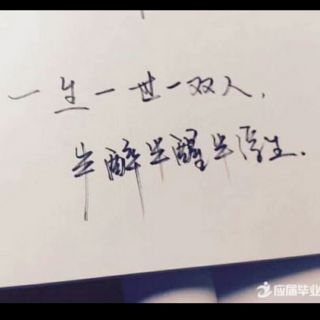 一生一世一双人,
半醉半醒半浮生.
应届毕业